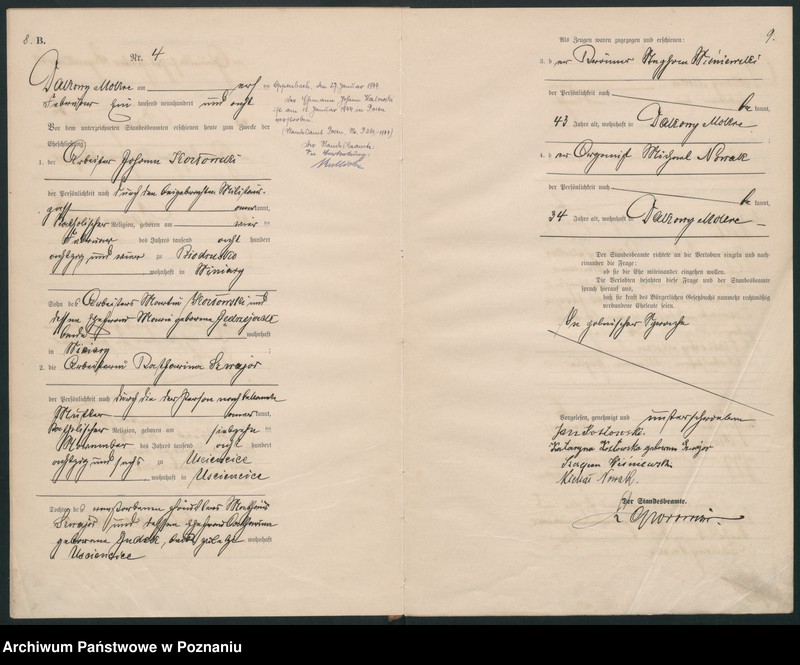 8. B.
Nr. 4
Dalkony Mokre am elf ten
Februar Ein tausend neunhundert und acht
Vor dem unterzeichneten Standesbeamten erschienen heute zum Zwecke der
Eheschließung:
1. der Arbeiter Johann Kozlowski
der Persönlichkeit nach durch den beigebrachten Militär-
pass anerkannt,
katholischer Religion, geboren am vier ten
Februar des Jahres tausend acht hundert
achtzig und vier zu Biedrusko
wohnhaft in Winiary
Sohn des Arbeiters Martin Kozlowski und
dessen Ehefrau Maria geborene
beide wohnhaft
in Winiary
2. die Arbeiterin Katharina Szwajor
der Persönlichkeit nach durch die der Person nach bekannte
Mutter anerkannt,
katholischer Religion, geboren am siebzehn ten
November des Jahres tausend acht hundert
achtzig und sechs zu Usciencice
wohnhaft in Usciencice
Tochter des verstorbenen Häuslers Mathäus
Szwajor und dessen Ehefrau Katharina
geborene Dudek, beide zuletzt wohnhaft
Usciencice
den 27. Januar 1944
Der Ehemann Johann Kozlowski
ist am 18. Januar 1944 in Posen
verstorben.
(Standesamt Posen Nr.
Der Standesbeamte
In Vertretung:
9.
Als Zeugen waren zugezogen und erschienen:
3. der Szczepan Wiśniewski
der Persönlichkeit nach bekannt,
43 Jahre alt, wohnhaft in Dalkony Mokre
4. der Organist Michael Nowak
der Persönlichkeit nach bekannt,
34 Jahre alt, wohnhaft in Dalkony Mokre
Der Standesbeamte richtete an die Verlobten einzeln und nach-
einander die Frage:
ob sie die Ehe miteinander eingehen wollen.
Die Verlobten bejahten diese Frage und der Standesbeamte
sprach hierauf aus,
daß sie kraft des Bürgerlichen Gesetzbuchs nunmehr rechtmäßig
verbundene Eheleute seien.
In polnischer Sprache
Vorgelesen, genehmigt und unterschrieben
Jan Kozłowski.
Katarzyna Kozłowska geborene Szwajor
Szczepan Wiśniewski
Michał Nowak.
Der Standesbeamte.
Archiwum Państwowe w Poznaniu